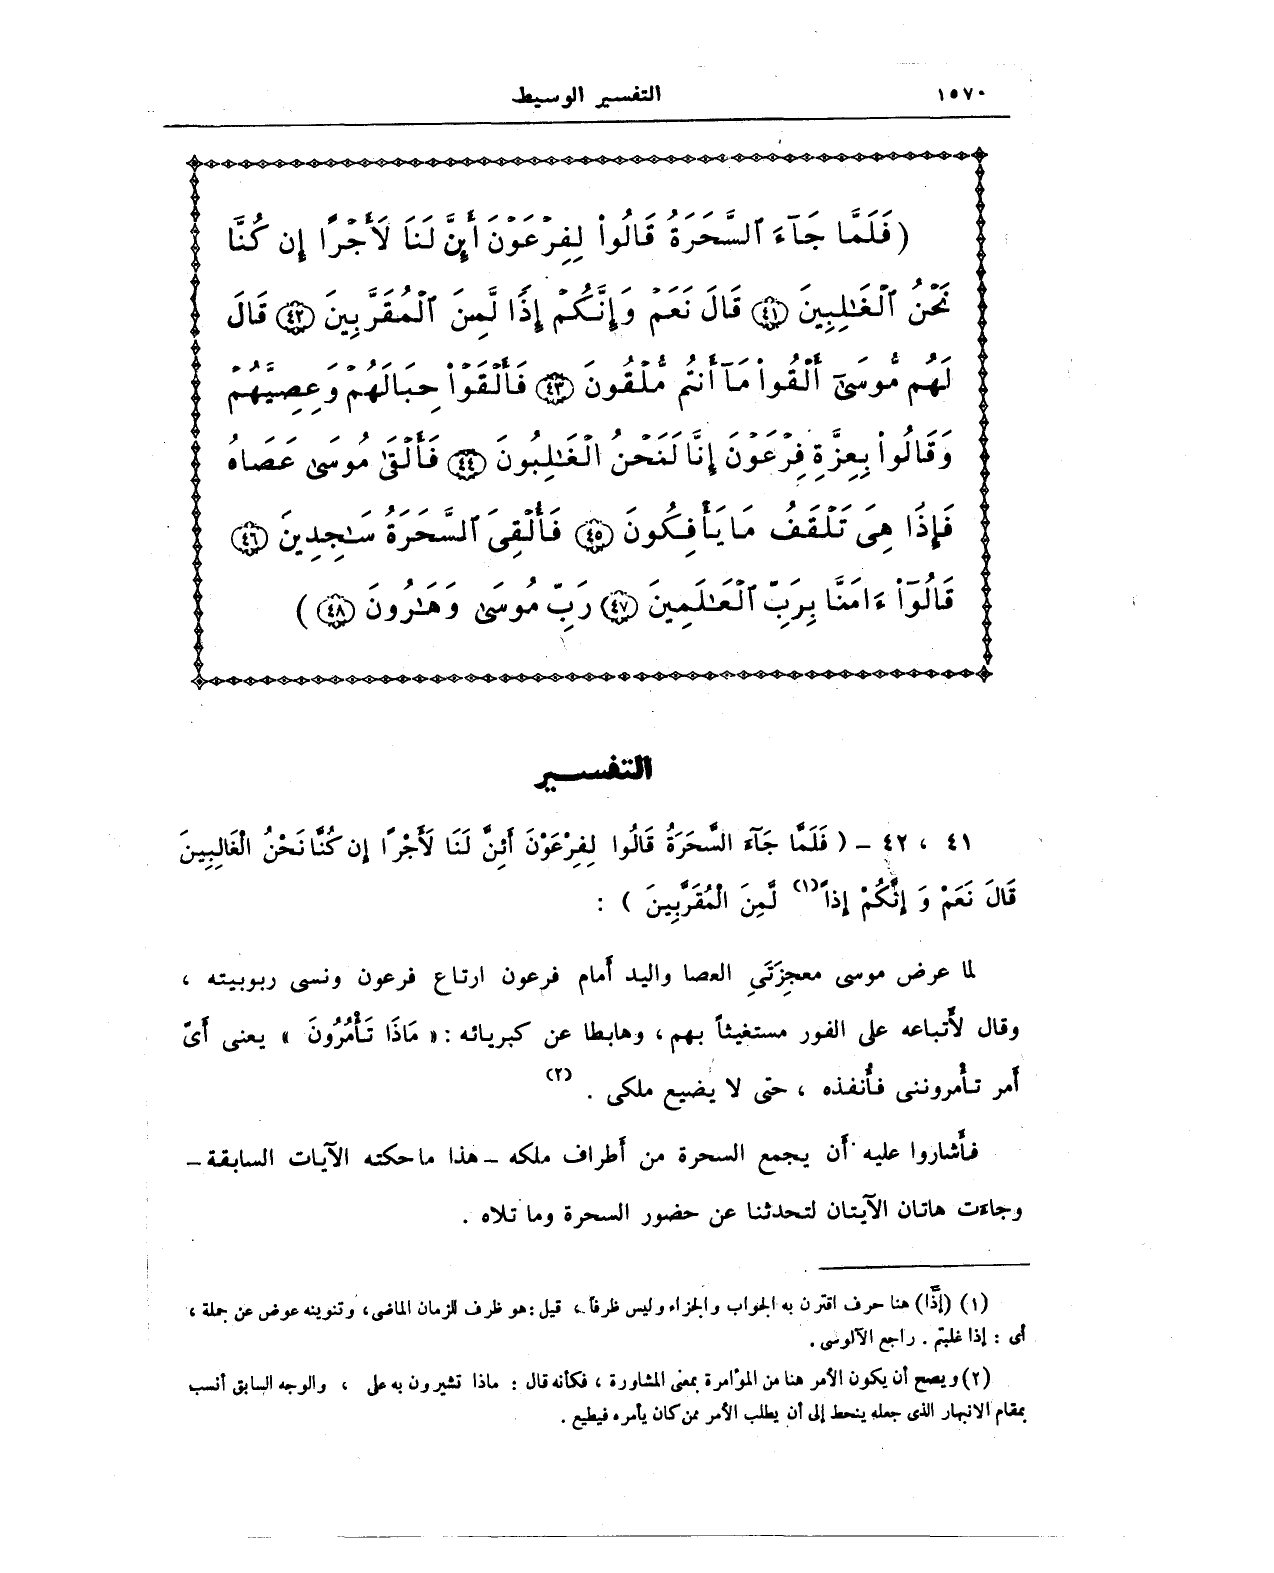 ١٥٧٠ التفسير الوسيط
( فَلَمَّا جَآءَ ٱلسَّحَرَةُ قَالُوا۟ لِفِرْعَوْنَ أَئِنَّ لَنَا لَأَجْرًا إِن كُنَّا
نَحْنُ ٱلْغَـٰلِبِينَ ﴿٤١﴾ قَالَ نَعَمْ وَإِنَّكُمْ إِذًا لَّمِنَ ٱلْمُقَرَّبِينَ ﴿٤٢﴾ قَالَ
لَهُم مُّوسَىٰٓ أَلْقُوا۟ مَآ أَنتُم مُّلْقُونَ ﴿٤٣﴾ فَأَلْقَوْا۟ حِبَالَهُمْ وَعِصِيَّهُمْ
وَقَالُوا۟ بِعِزَّةِ فِرْعَوْنَ إِنَّا لَنَحْنُ ٱلْغَـٰلِبُونَ ﴿٤٤﴾ فَأَلْقَىٰ مُوسَىٰ عَصَاهُ
فَإِذَا هِىَ تَلْقَفُ مَا يَأْفِكُونَ ﴿٤٥﴾ فَأُلْقِىَ ٱلسَّحَرَةُ سَـٰجِدِينَ ﴿٤٦﴾
قَالُوٓا۟ ءَامَنَّا بِرَبِّ ٱلْعَـٰلَمِينَ ﴿٤٧﴾ رَبِّ مُوسَىٰ وَهَـٰرُونَ ﴿٤٨﴾ )
التفسـير
٤١ ، ٤٢ – ( فَلَمَّا جَآءَ السَّحَرَةُ قَالُوا لِفِرْعَوْنَ أَئِنَّ لَنَا لَأَجْرًا إِن كُنَّا نَحْنُ الْغَالِبِينَ
قَالَ نَعَمْ وَ إِنَّكُمْ إِذاً (١) لَّمِنَ الْمُقَرَّبِينَ ) :
لما عرض موسى معجزَتَى العصا واليد أمام فرعون ارتاع فرعون ونسى ربوبيته ،
وقال لأتباعه على الفور مستغيثاً بهم ، وهابطا عن كبريائه : « مَاذَا تَأْمُرُونَ » يعنى أىّ
أمر تأمروننى فأنفذه ، حتى لا يضيع ملكى . (٢)
فأشاروا عليه أن يجمع السحرة من أطراف ملكه – هذا ما حكته الآيات السابقة –
وجاءت هاتان الآيتان لتحدثنا عن حضور السحرة وما تلاه .
(١) (إذًا) هنا حرف اقترن به الجواب والجزاء وليس ظرفاً ، قيل : هو ظرف للزمان الماضى ، وتنوينه عوض عن جملة ،
أى : إذا غلبتم . راجع الآلوسى .
(٢) ويصح أن يكون الأمر هنا من المؤامرة بمعنى المشاورة ، فكأنه قال : ماذا تشيرون به على ، والوجه السابق أنسب
بمقام الانبهار الذى جعله ينحط إلى أن يطلب الأمر ممن كان يأمره فيطيع .